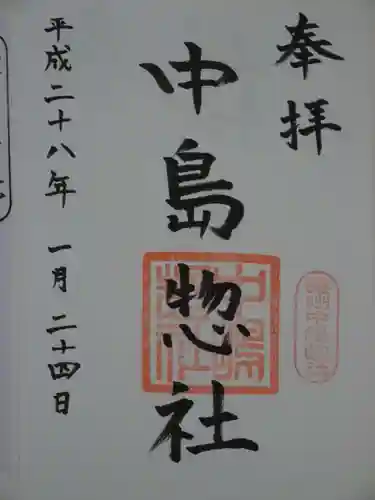 奉拝
中島惣社
平成二十八年 一月 二十四日